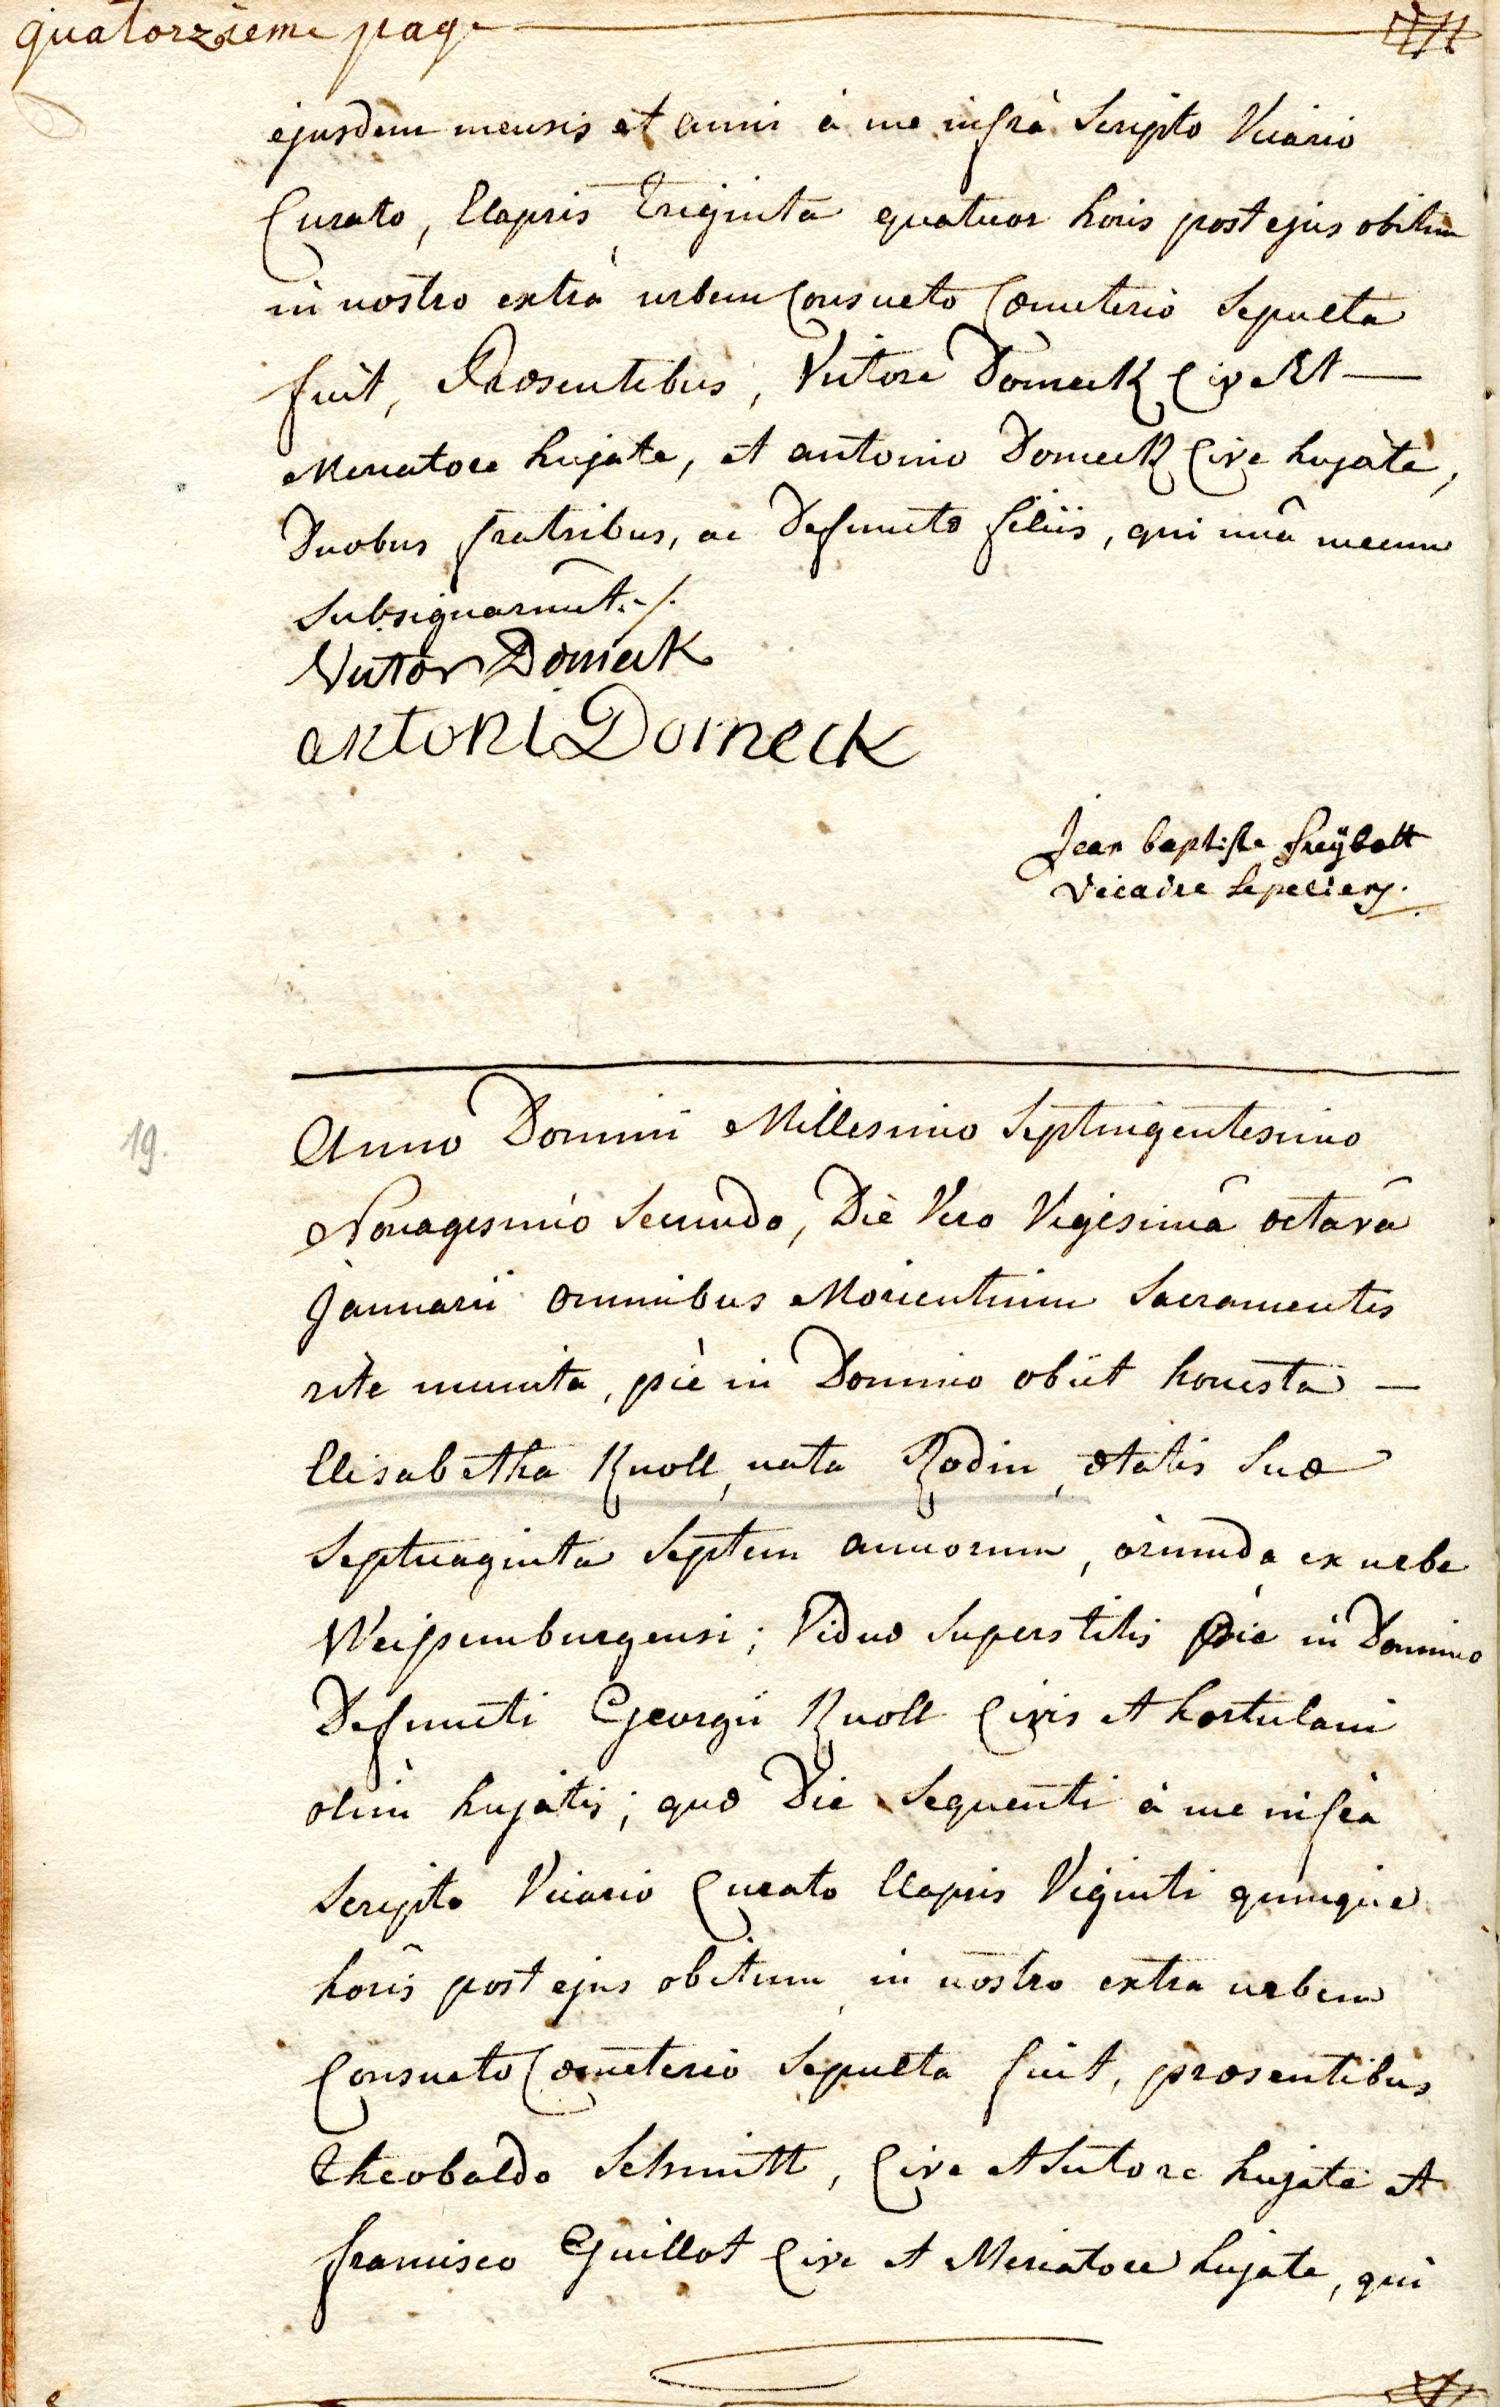 quatorzième page
ejusdem mensis et anni à me infrà Scripto Vicario
Curato, Elapsis Triginta quatuor horis post ejus obitum
in nostro extrà urbem Consueto Cœmeterio Sepulta
fuit, Præsentibus, Victore Domeck Cive Et —
Mercatore hujate, et antonio Domeck Cive hujate,
Duobus fratribus, ac Defunctæ filiis, qui unà mecum
Subsignarunt ./.
Victor Domeck
antoni Domeck
Jean baptiste freÿbott
Vicaire
19.
Anno Domini Millesimo Septingentesimo
Nonagesimo Secundo, Die Vero Vigesimâ octavâ
Januarii omnibus Morientium Sacramentis
ritè munita, piè in Domino obiit honesta —
Elisabetha Knoll, nata Rodin, ætatis Suæ
Septuaginta Septem annorum, oriunda ex urbe
Weissemburgensi; Viduæ Superstitis piè in Domino
Defuncti Georgii Knoll Civis et hortulani
olim hujatis; quæ Die Sequenti à me infrà
Scripto Vicario Curato Elapsis Viginti quinque
horis post ejus obitum, in nostro extra urbem
Consueto Cœmeterio Sepulta fuit, præsentibus
Theobaldo Schmitt, Cive et Sutore hujate et
francisco Guillot Cive et Mercatore hujate, qui